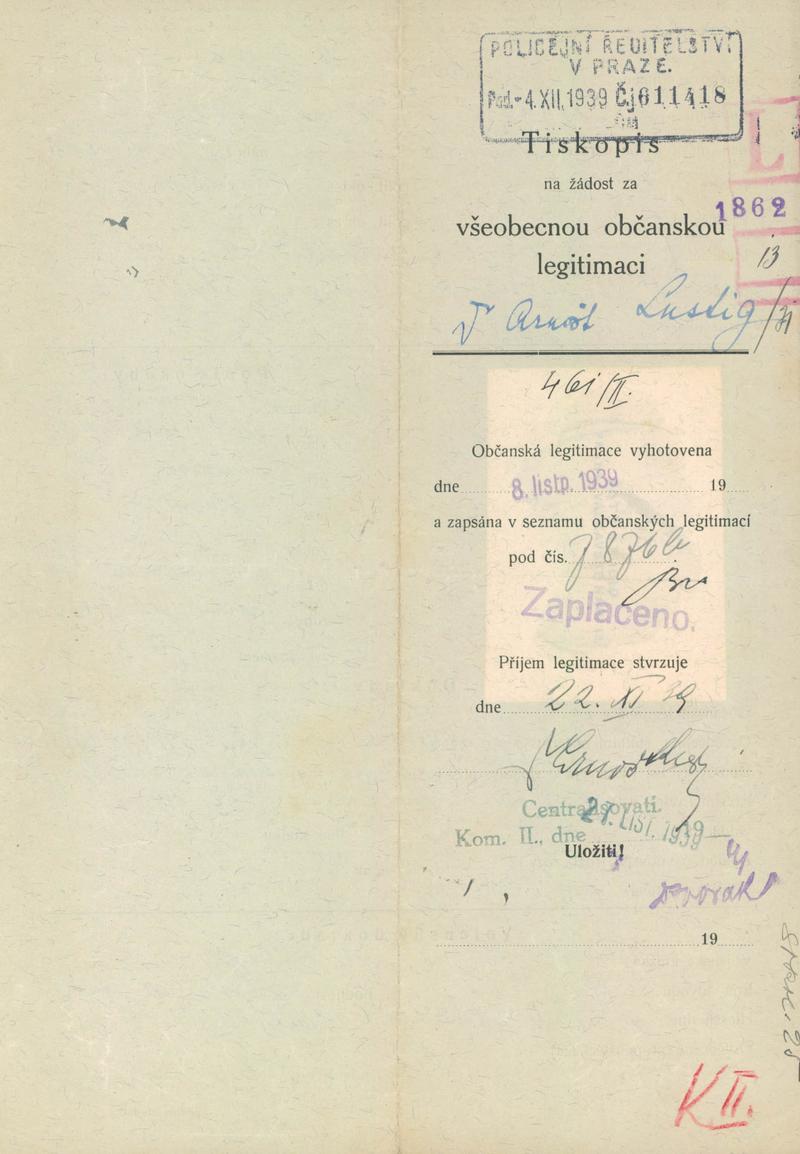 POLICEJNÍ ŘEDITELSTVÍ
V PRAZE.
Pod. -4.XII.1939 Čj611418
Tiskopis
na žádost za
1862
všeobecnou občanskou
legitimaci
13
Arnošt Lustig /31
461/II.
Občanská legitimace vyhotovena
dne 8. listp. 1939 19
a zapsána v seznamu občanských legitimací
pod čís. 7876
Zaplaceno.
Příjem legitimace stvrzuje
dne 22. XI 39
Centralisovati.
Kom. II., dne 27. LIST. 1939
Uložiti!
Dvořák
19
K II.